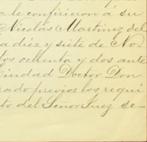 a le confirieron á su
Nicolas Martinez del
a diez y siete de No
los ochenta y dos ante
Ciudad Doctor Don
rado previos los requi
to del Señor Juez de